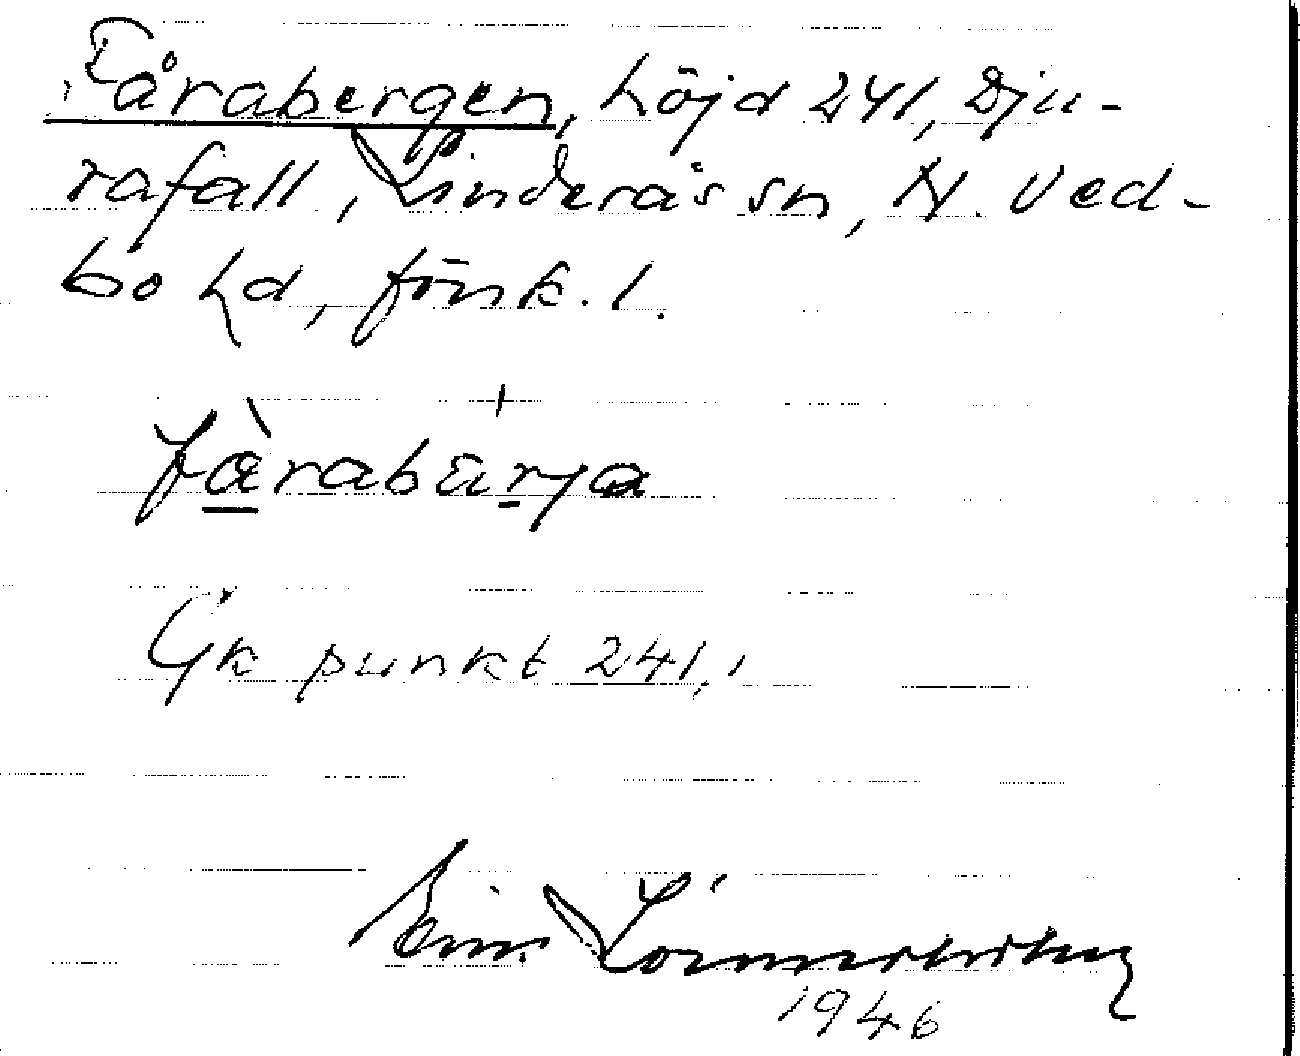 Fårabergen, höjd 241, Dju-
rafall, Linderås sn, N. Ved-
bo hd, Jönk. l.
fàrabärja
Gk punkt 241,1
Ein.
1946